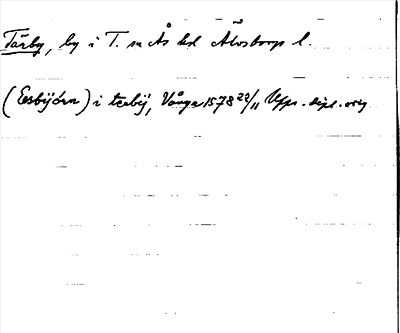 Tärby, by i T. sn Ås hd Älvsborgs l.
(Eesbijörn) i terbij, Vånga 1578 22/11 Upps. dipl. orig.